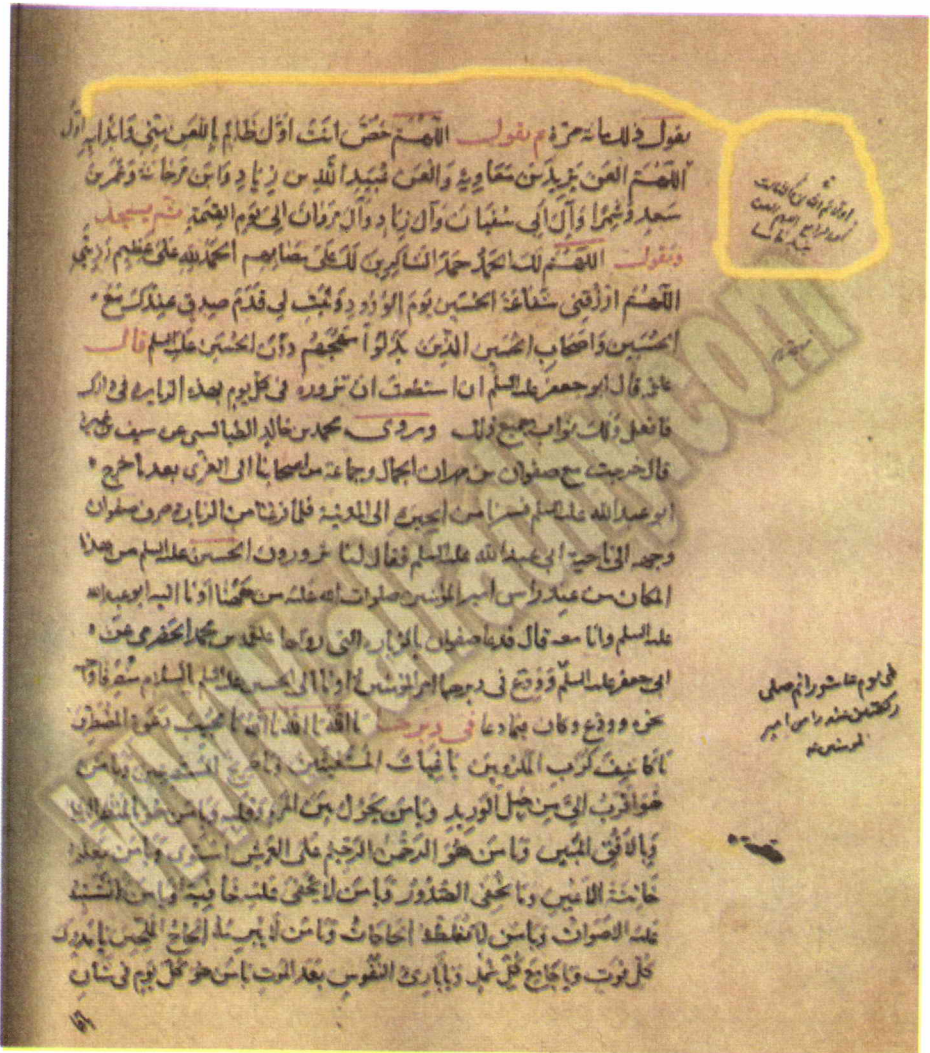 يقول ذلك مائة مرة ثم يقول اللهم خص انت اول ظالم باللعن مني وابدا به اول
اللهم العن يزيد بن معاوية والعن عبيد الله بن زياد وابن مرجانة وعمر بن
سعد وشمرا وآل ابي سفيان وآل زياد وآل مروان الى يوم القيمة ثم يسجد
ويقول اللهم لك الحمد حمد الشاكرين لك على مصابهم الحمد لله على عظيم رزيتي
اللهم ارزقني شفاعة الحسين يوم الورود وثبت لي قدم صدق عندك مع
الحسين واصحاب الحسين الذين بذلوا مهجهم دون الحسين عليه السلم قال
علقمة قال ابو جعفر عليه السلم ان استطعت ان تزوره في كل يوم بهذه الزيارة في دارك
فافعل ذلك ثواب جميع ذلك وروى محمد بن خالد الطيالسي عن سيف بن عميرة
قال خرجت مع صفوان بن مهران الجمال وجماعة من اصحابنا الى الغري بعد ما خرج
ابو عبد الله عليه السلم فسرنا من الحيرة الى المدينة فلما فرغنا من الزيارة صرف صفوان
وجهه الى ناحية ابي عبد الله عليه السلم فقال لنا تزورون الحسين عليه السلم من هذا
المكان من عند راس امير المؤمنين صلوات الله عليه من ههنا اومأ اليه ابو عبد الله
عليه السلم وانا معه قال فدعا صفوان بالزيارة التي رواها علقمة بن محمد الحضرمي عن
ابي جعفر عليه السلم وودع في دبرها امير المؤمنين واومأ الى الحسين عليه السلم
نحوه وودع وكان فيما دعا في دبرها يا الله يا الله يا الله يا مجيب دعوة المضطرين
يا كاشف كرب المكروبين يا غياث المستغيثين ويا صريخ المستصرخين ويا من
هو اقرب الي من حبل الوريد ويا من يحول بين المرء وقلبه ويا من هو بالمنظر الاعلى
وبالافق المبين ويا من هو الرحمن الرحيم على العرش استوى ويا من يعلم
خائنة الاعين وما تخفي الصدور ويا من لا يخفى عليه خافية ويا من لا تشتبه
عليه الاصوات ويا من لا تغلطه الحاجات ويا من لا يبرمه الحاح الملحين يا مدرك
كل فوت ويا جامع كل شمل ويا بارئ النفوس بعد الموت يا من هو كل يوم في شان
اولا ثم الثاني ثم الثالث
ثم الرابع اللهم العن
يزيد خامسا
في يوم عاشورا ثم صلى
ركعتين عند راس امير
المؤمنين
www.alrad.com